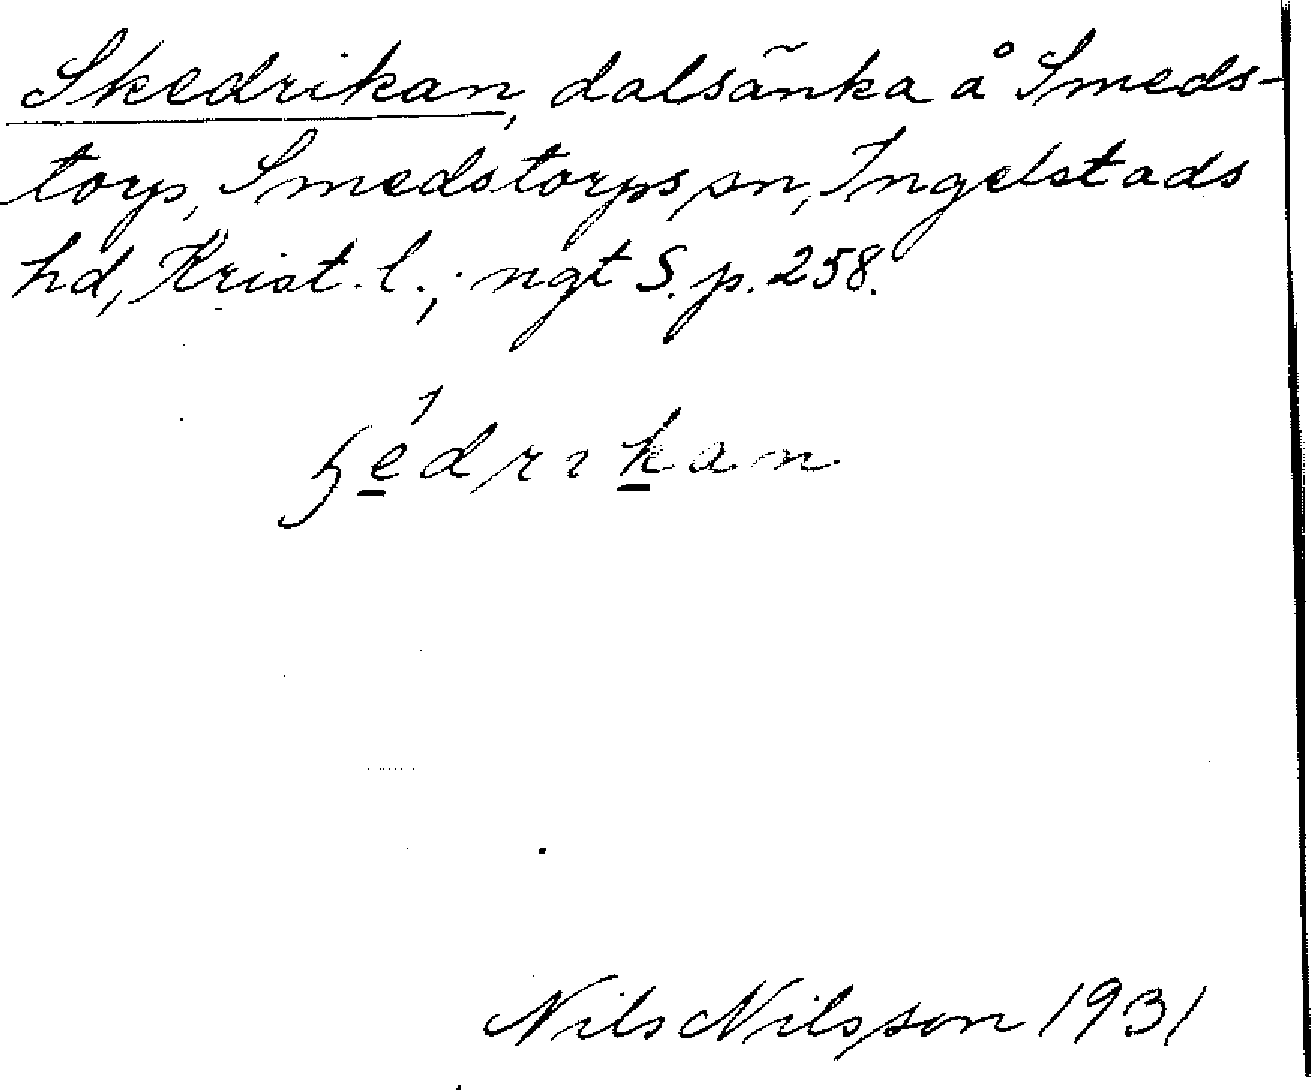 Skedrikan, dalsänka å Smeds-
torp, Smedstorps sn, Ingelstads
hd, Krist. l.; ngt S. p. 258.
ɧédrikan
Nils Nilsson 1931